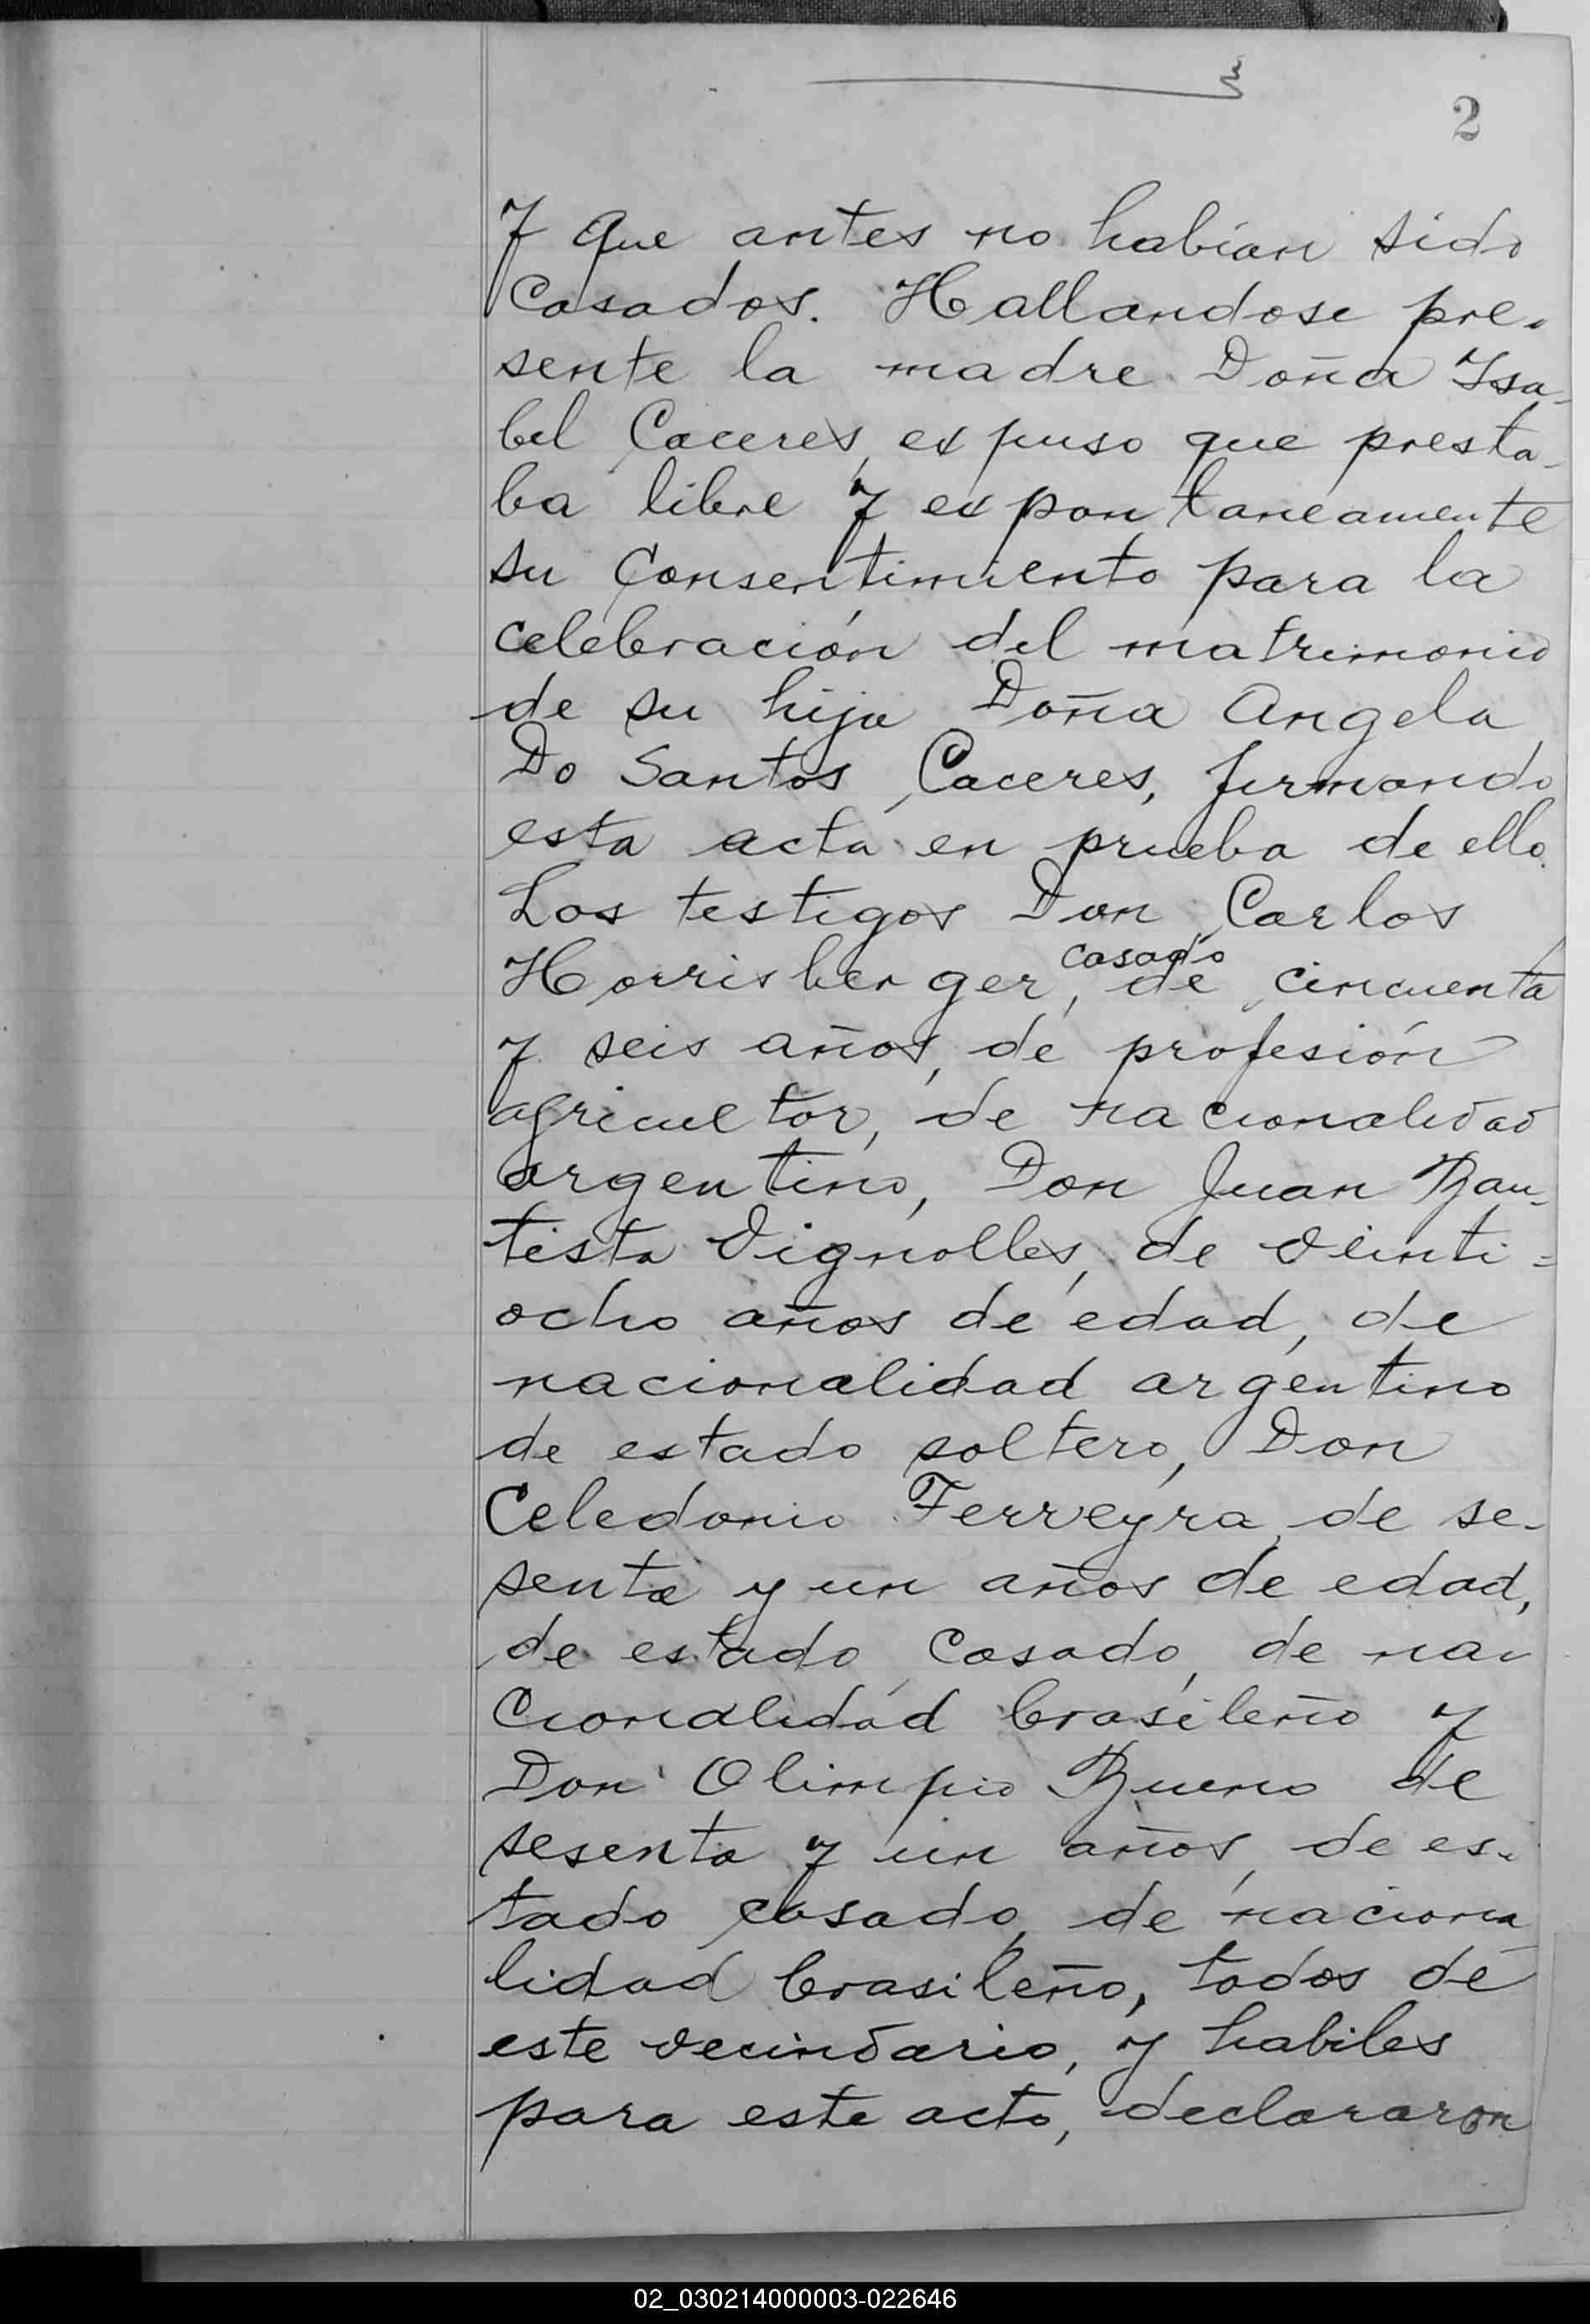 2
y que antes no habían sido
casados. Hallandose pre-
sente la madre Doña Ysa-
bel Caceres, expuso que presta-
ba libre y expontaneamente
su consentimiento para la
celebración del matrimonio
de su hija Doña Angela
Do Santos Caceres, firmando
esta acta en prueba de ello.
Los testigos Don Carlos
casado
Horrisberger, de cincuenta
y seis años, de profesión
agricultor, de nacionalidad
argentino, Don Juan Bau-
tista Vignolles, de veinti=
ocho años de edad, de
nacionalidad argentino
de estado soltero, Don
Celedonio Ferreyra, de se-
senta y un años de edad,
de estado casado, de na-
cionalidad brasileño y
Don Olimpio Bueno de
sesenta y un años, de es-
tado casado, de naciona
lidad brasileño, todos de
este vecindario, y habiles
para este acto, declararon
02_030214000003-022646